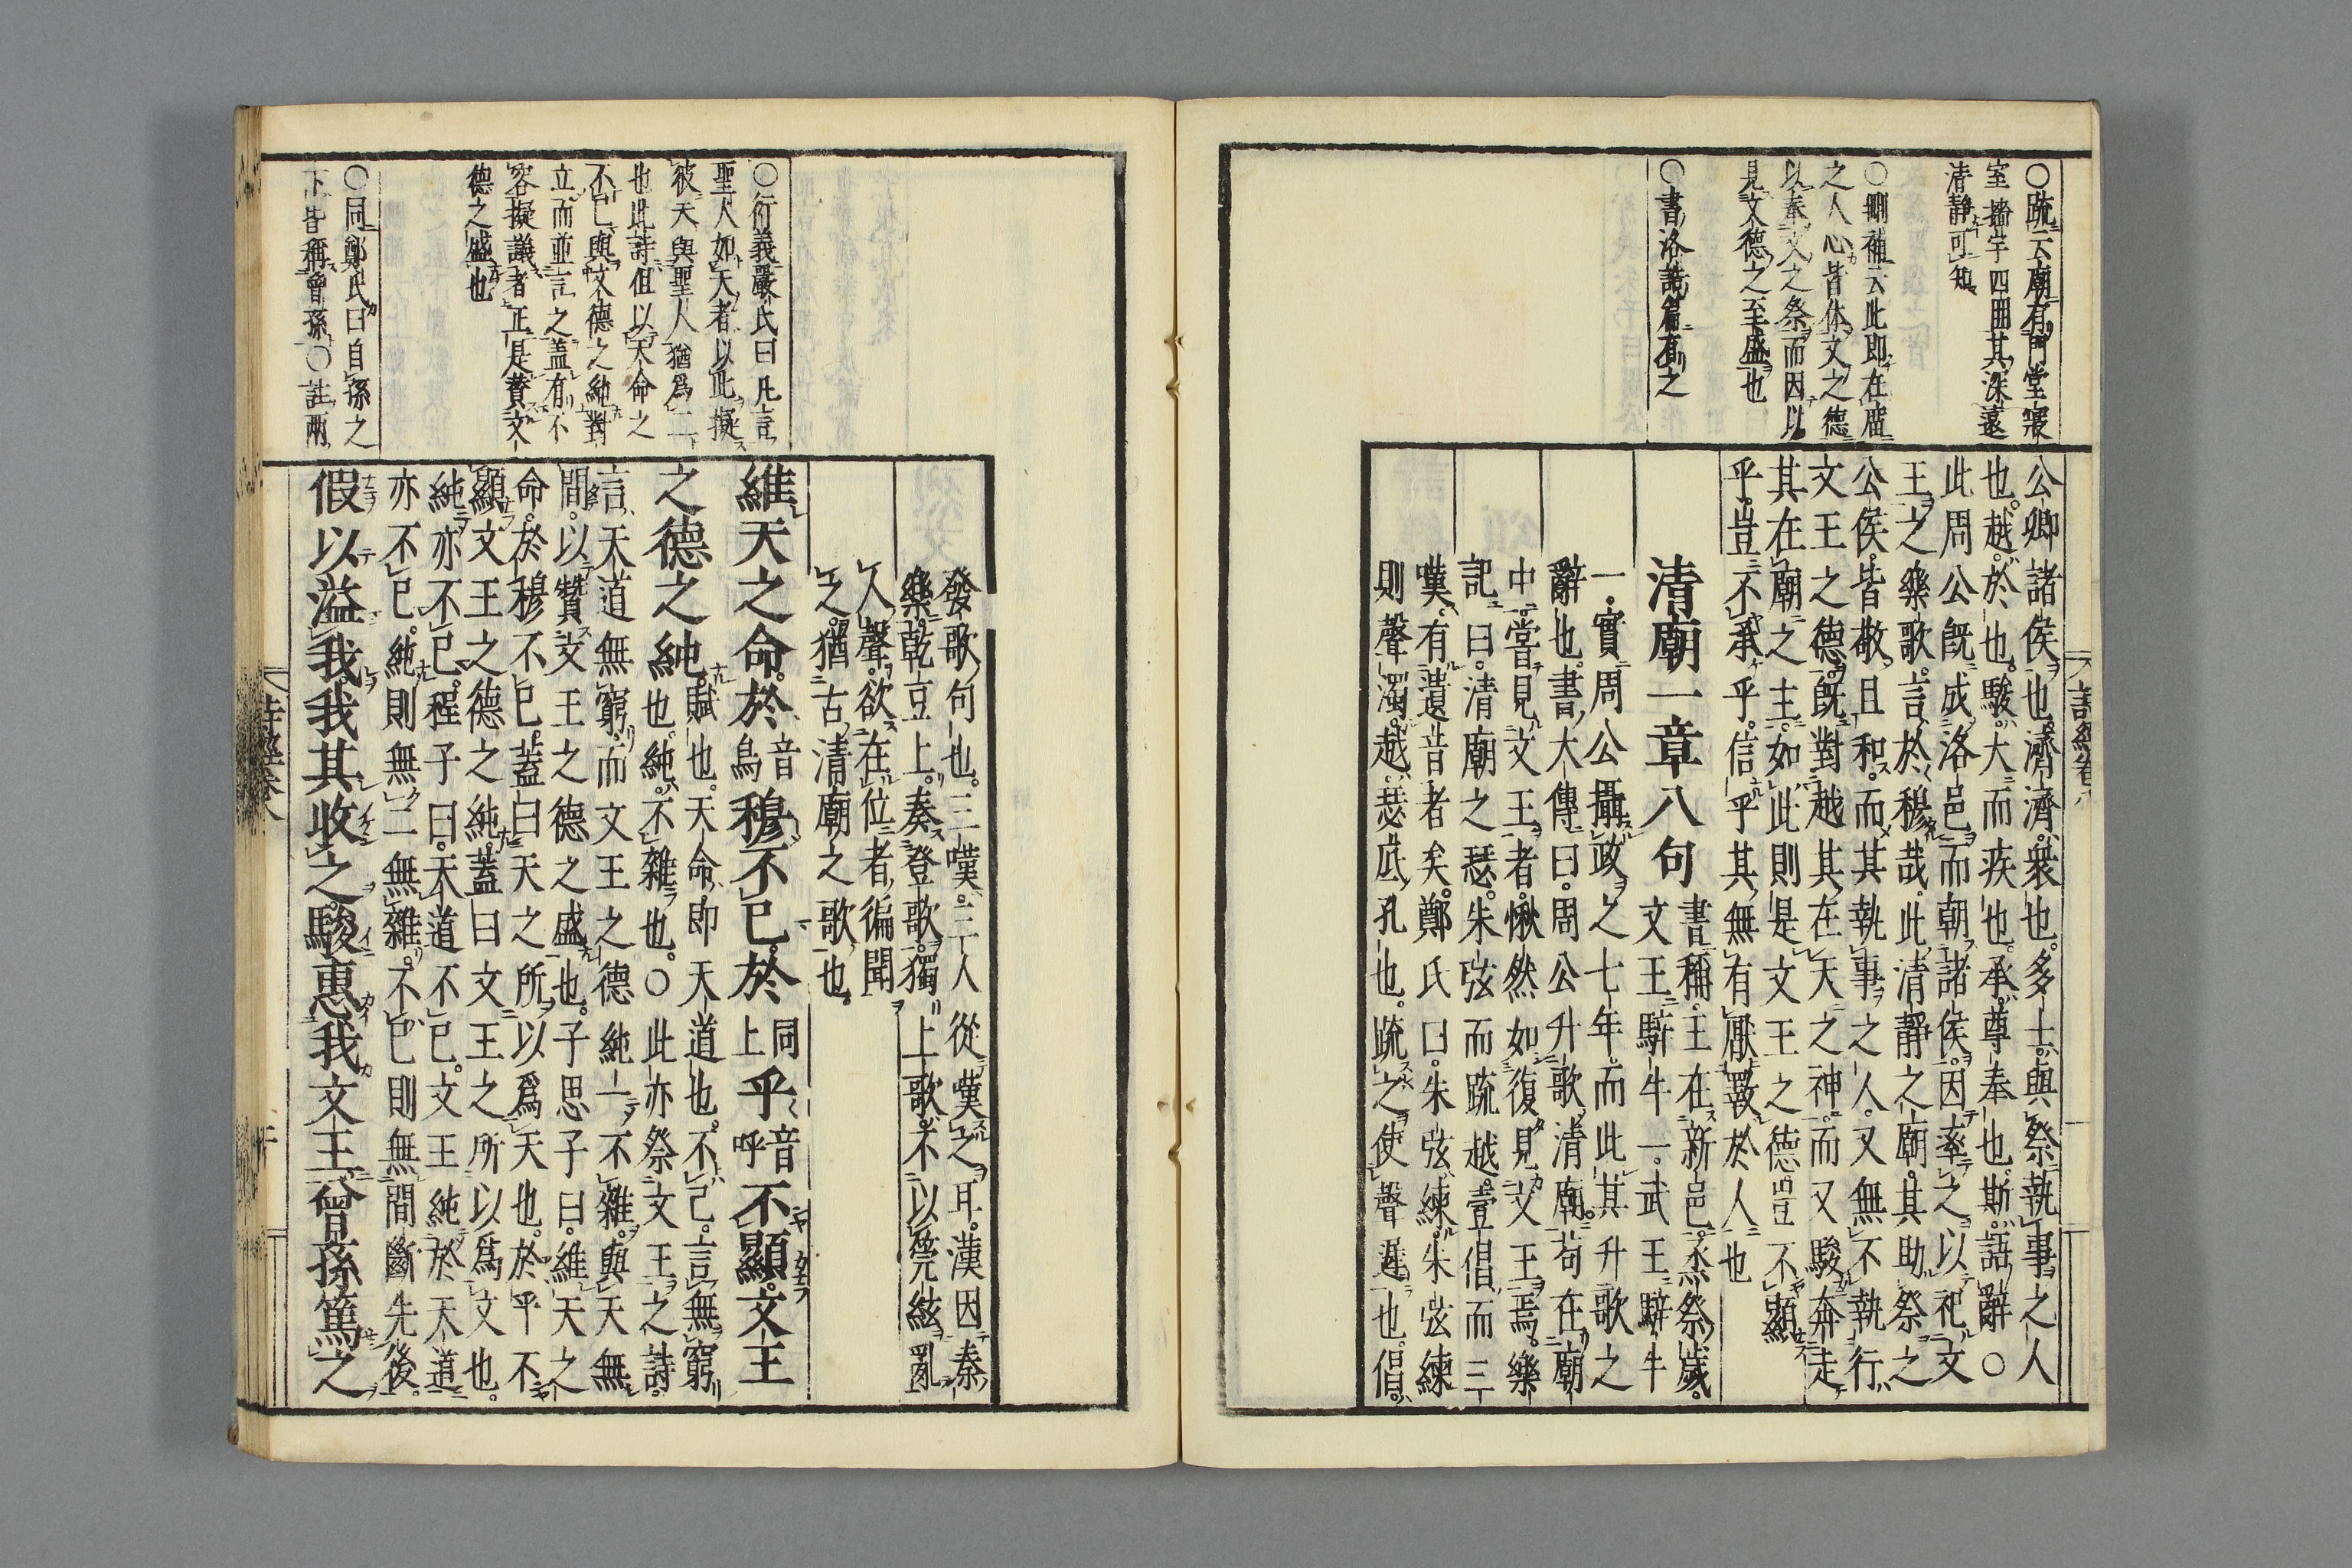 ○疏云廟有門堂寢
室墻宇四周其深遠
清靜可知
○刪補云此即在廟
之人心皆体文之德
以奉文之祭而因以
見文德之至盛也
○書洛誥篇有之
公卿諸侯也濟濟衆也多士與祭執事之人
也越於也駿大而疾也承尊奉也斯語辭○
此周公既成洛邑而朝諸侯因率之以祀文
王之樂歌言於穆哉此清靜之廟其助祭之
公侯皆敬且和而其執事之人又無不執行
文王之德既對越其在天之神而又駿奔走
其在廟之主如此則是文王之德豈不顯
乎豈不承乎信乎其無有厭斁於人也
清廟一章八句
書稱王在新邑烝祭歲
文王騂牛一武王騂牛
一實周公攝政之七年而此其升歌之
辭也書大傳曰周公升歌清廟苟在廟
中嘗見文王者愀然如復見文王焉樂
記曰清廟之瑟朱弦而疏越壹倡而三
嘆有遺音者矣鄭氏曰朱弦練朱弦練
則聲濁越瑟底孔也疏之使聲遲也倡
詩經卷八
○衍義嚴氏曰凡言
聖人如天者以此擬
彼天與聖人猶爲二
也此詩但以天命之
不已與文德之純對
立而並言之蓋有不
容擬議者正是贊文
德之盛也
○同鄭氏曰自孫之
下皆稱曾孫○註兩
發歌句也三嘆三人從嘆之耳漢因秦
樂乾豆上奏登歌獨上歌不以筦絃亂
人聲欲在位者徧聞
之猶古清廟之歌也
維天之命於音烏穆不已於同上乎音呼不顯文王
之德之純
賦也天命即天道也不已言無窮
也純不雜也○此亦祭文王之詩
言天道無窮而文王之德純一不雜與天無
間以贊文王之德之盛也子思子曰維天之
命於穆不已蓋曰天之所以爲天也於乎不
顯文王之德之純蓋曰文王之所以爲文也
純亦不已程子曰天道不已文王純於天道
亦不已純則無二無雜不已則無間斷先後
假以溢我我其收之駿惠我文王曾孫篤之
詩經卷八